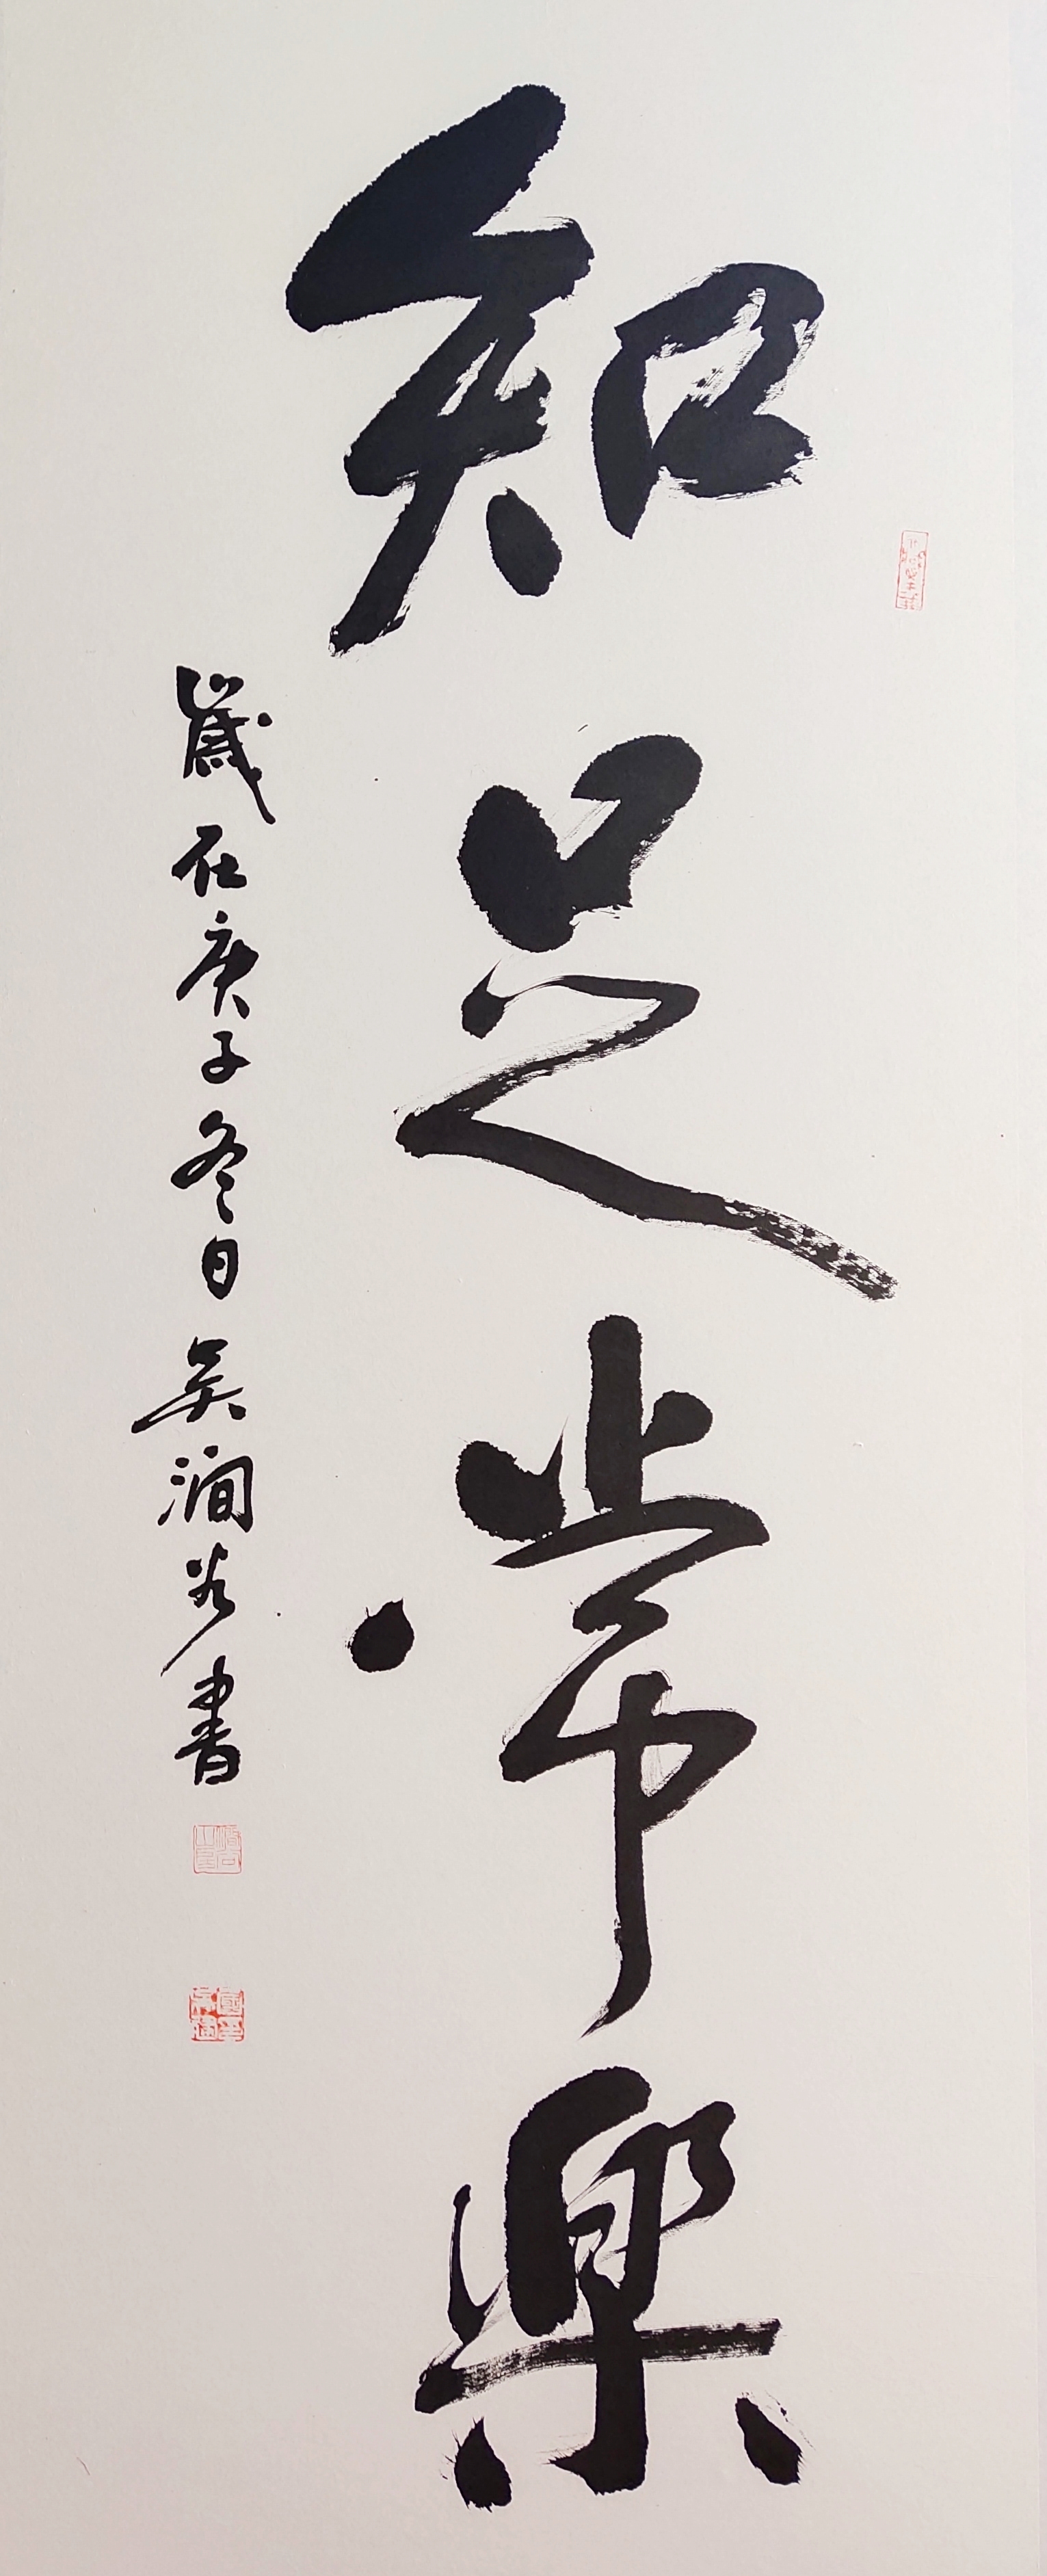 知足常樂
歲在庚子冬日吳澗谷書